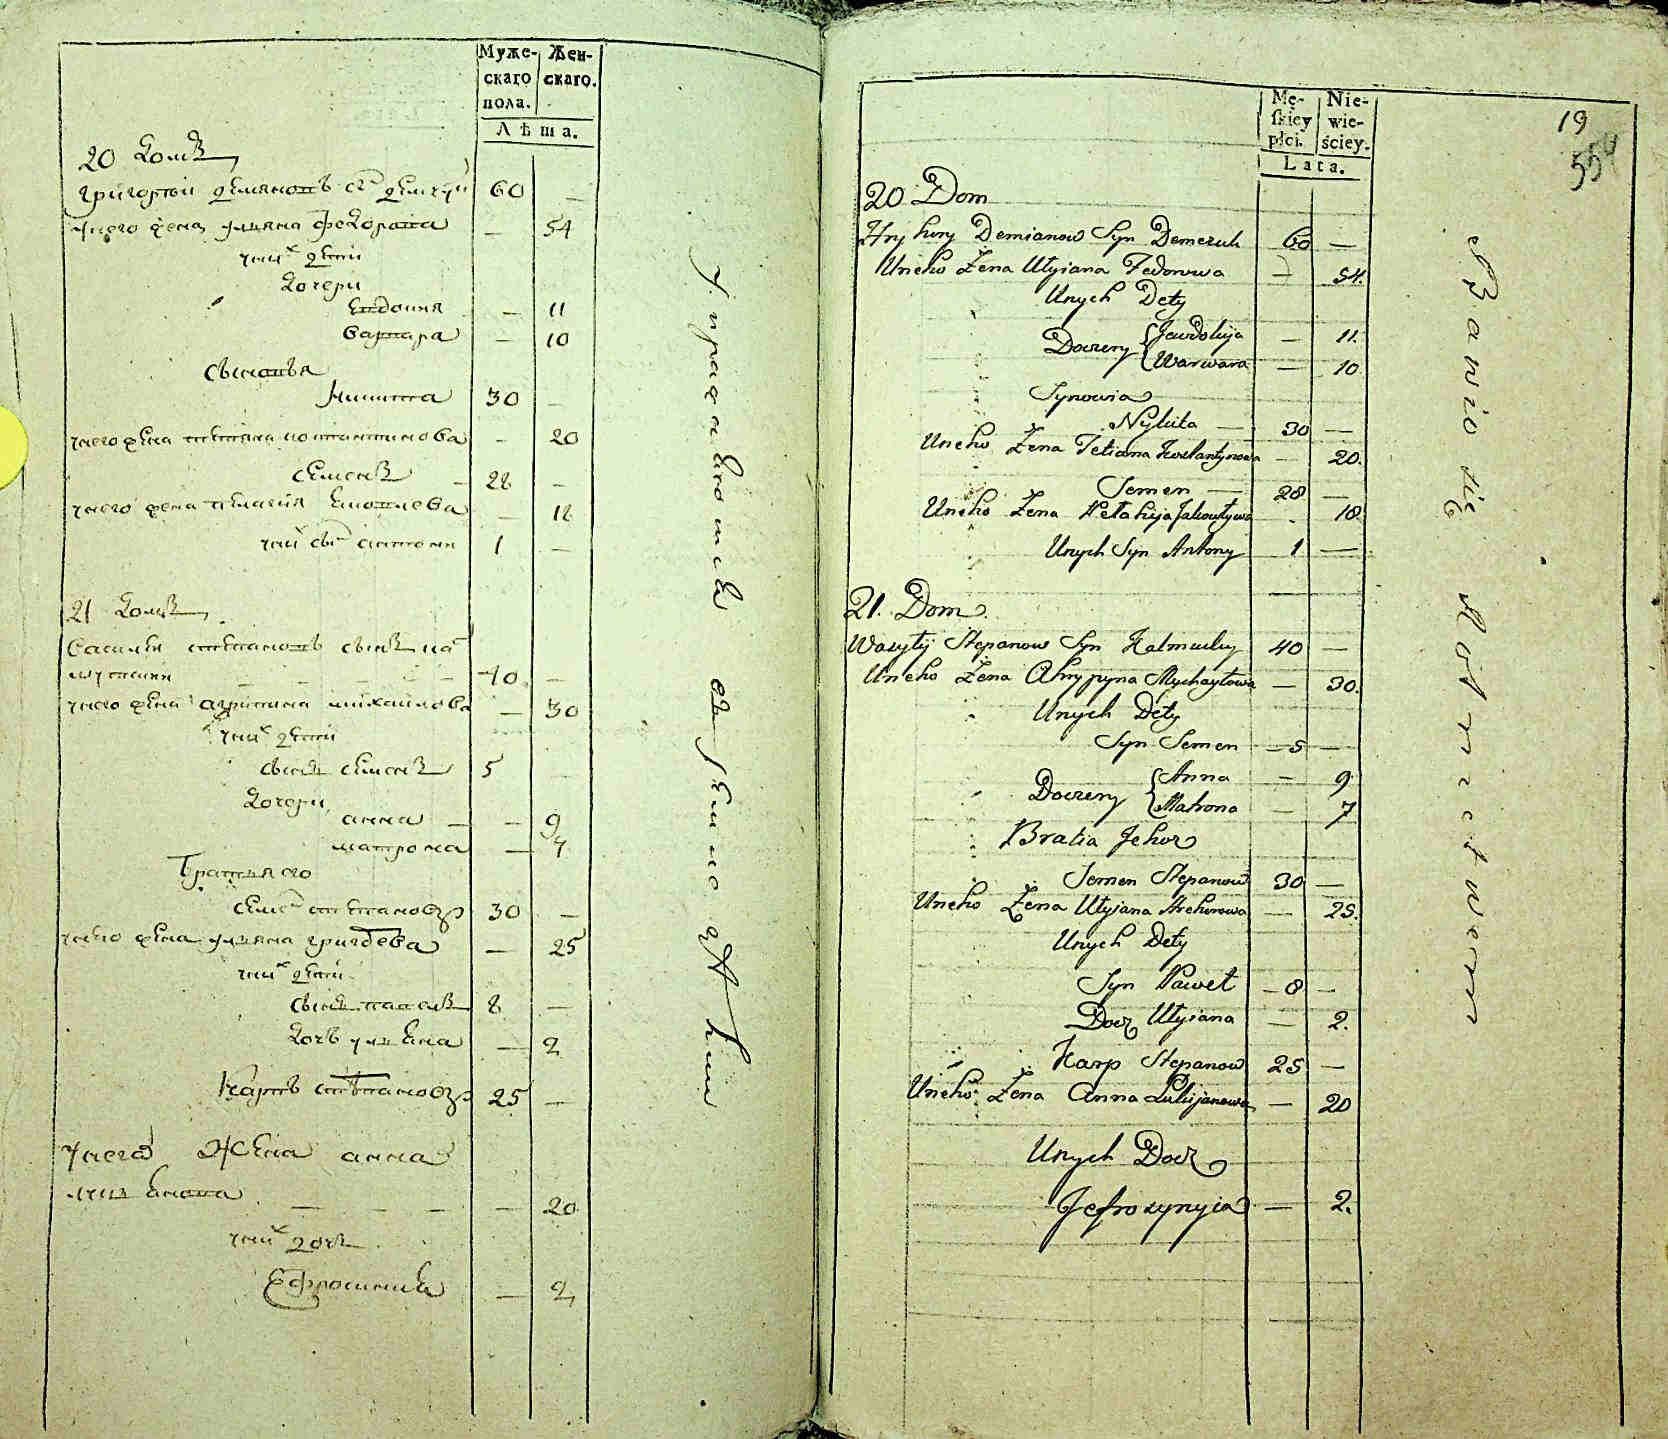 Муже-
скаго
пола.
Жен-
скаго.
Лѣта.
20 Домъ
Григорый Демяновъ сн Демчукъ 60 —
у него жена Уляна Федорова — 54
у них дети
Дочери
Евдокия — 11
Варвара — 10
Сыновья
Никита 30 —
у него жена Татяна Костантинова — 20
Семенъ 28 —
у него жена Пелагия — 18
у них сн Антони 1 —
21 Домъ
Василий Степановъ сынъ
40 —
у него жена Агрипина Михайлова — 30
у них дети
сынъ Семенъ 5
Дочери
Анна — 9
Матрона — 7
Братья его
Семен Степановъ 30 —
у него жена Уляна — 25
у них дети
сынъ Павелъ 8 —
Дочъ Улияна — 2
Карпъ Степановъ 25 —
у него Жена Анна
— 20
у них дочъ
Ефросиния — 2
Упражняются въ
Mę-
skiey
płci.
Nie-
wie-
ściey.
Lata.
19
554
20 Dom
Hryhory Demianow Syn Demczuk 60 —
Uneho Żena Ułyiana Fedorowa — 54.
Unych Dety
Doczery Jewdokija — 11.
Warwara — 10.
Synowia
Nykita — 30 —
Uneho Żena Tetiana Kostantynowa — 20.
Semen — 28 —
Uneho Żena Pełahija Jakowływa - 18.
Unych Syn Antony 1 —
21. Dom
Wasyłij Stepanow Syn Kałmucky 40 —
Uneho Żena Ahrypyna Mychayłowa — 30.
Unych Dety
Syn Semen — 5 —
Doczery Anna — 9.
Matrona — 7
Bratia Jehoz
Semen Stepanow 30 —
Uneho Żena Ułyiana Hrehorowa — 25.
Unych Dety
Syn Paweł — 8 —
Docz Ułyiana — 2.
Karp Stepanow 25 —
Uneho Żena Anna Łukijanowa — 20
Unych Docz
Jefrozynyia — 2.
Bawio się Rolnictwem